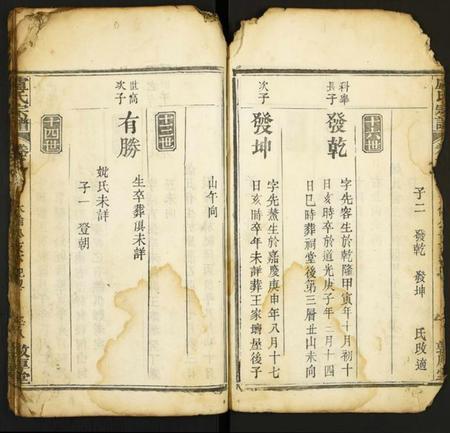 子二 發乾 發坤
氏改適
十六世
科舉
長子
發乾
字先容生於乾隆甲寅年十月初十
日亥時卒於道光庚子年二月十四
日巳時葬祠堂後第三層丑山未向
次子
發坤
字先蕉生於嘉慶庚申年八月十七
日亥時卒年未詳葬王家壪屋後子
山午向
十三世
世高
次子
有勝
生卒葬俱未詳
妣氏未詳
子一 登朝
十四世
盧氏宗譜
敦厚堂